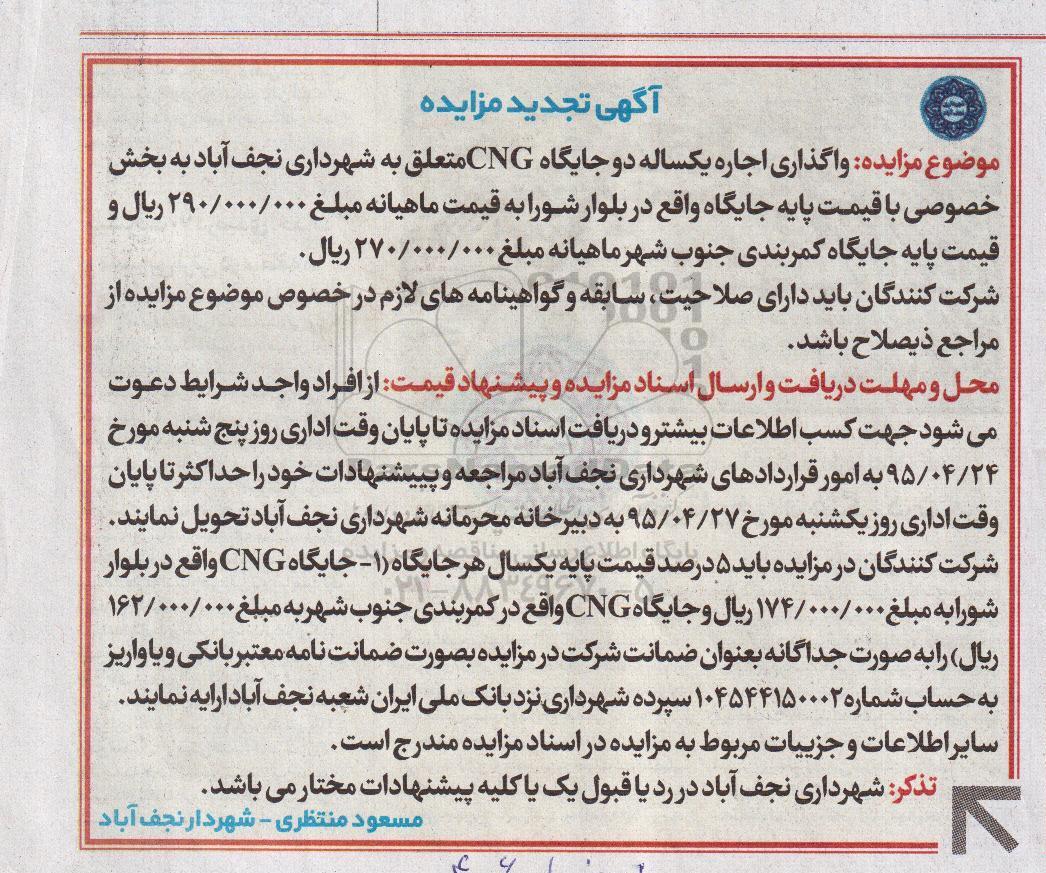 آگهی تجدید مزایده
موضوع مزایده: واگذاری اجاره یکساله دو جایگاه CNG متعلق به شهرداری نجف آباد به بخش
خصوصی با قیمت پایه جایگاه واقع در بلوار شورا به قیمت ماهیانه مبلغ ۲۹۰/۰۰۰/۰۰۰ ریال و
قیمت پایه جایگاه کمربندی جنوب شهر ماهیانه مبلغ ۲۷۰/۰۰۰/۰۰۰ ریال.
شرکت کنندگان باید دارای صلاحیت، سابقه و گواهینامه های لازم در خصوص موضوع مزایده از
مراجع ذیصلاح باشد.
محل و مهلت دریافت و ارسال اسناد مزایده و پیشنهاد قیمت: از افراد واجد شرایط دعوت
می شود جهت کسب اطلاعات بیشتر و دریافت اسناد مزایده تا پایان وقت اداری روز پنج شنبه مورخ
۹۵/۰۴/۲۴ به امور قراردادهای شهرداری نجف آباد مراجعه و پییشنهادات خود را حداکثر تا پایان
وقت اداری روز یکشنبه مورخ ۹۵/۰۴/۲۷ به دبیرخانه محرمانه شهرداری نجف آباد تحویل نمایند.
شرکت کنندگان در مزایده باید ۵ درصد قیمت پایه یکسال هر جایگاه (۱- جایگاه CNG واقع در بلوار
شورا به مبلغ ۱۷۴/۰۰۰/۰۰۰ ریال و جایگاه CNG واقع در کمربندی جنوب شهر به مبلغ ۱۶۲/۰۰۰/۰۰۰
ریال) را به صورت جداگانه بعنوان ضمانت شرکت در مزایده بصورت ضمانت نامه معتبر بانکی و یا واریز
به حساب شماره ۱۰۴۵۴۴۱۵۰۰۰۲ سپرده شهرداری نزد بانک ملی ایران شعبه نجف آباد ارایه نمایند.
سایر اطلاعات و جزییات مربوط به مزایده در اسناد مزایده مندرج است.
تذکر: شهرداری نجف آباد در رد یا قبول یک یا کلیه پیشنهادات مختار می باشد.
مسعود منتظری - شهردار نجف آباد
پایگاه اطلاع رسانی مناقصه و مزایده
۰۲۱-۸۸۳۴۹۶۷۰-۵